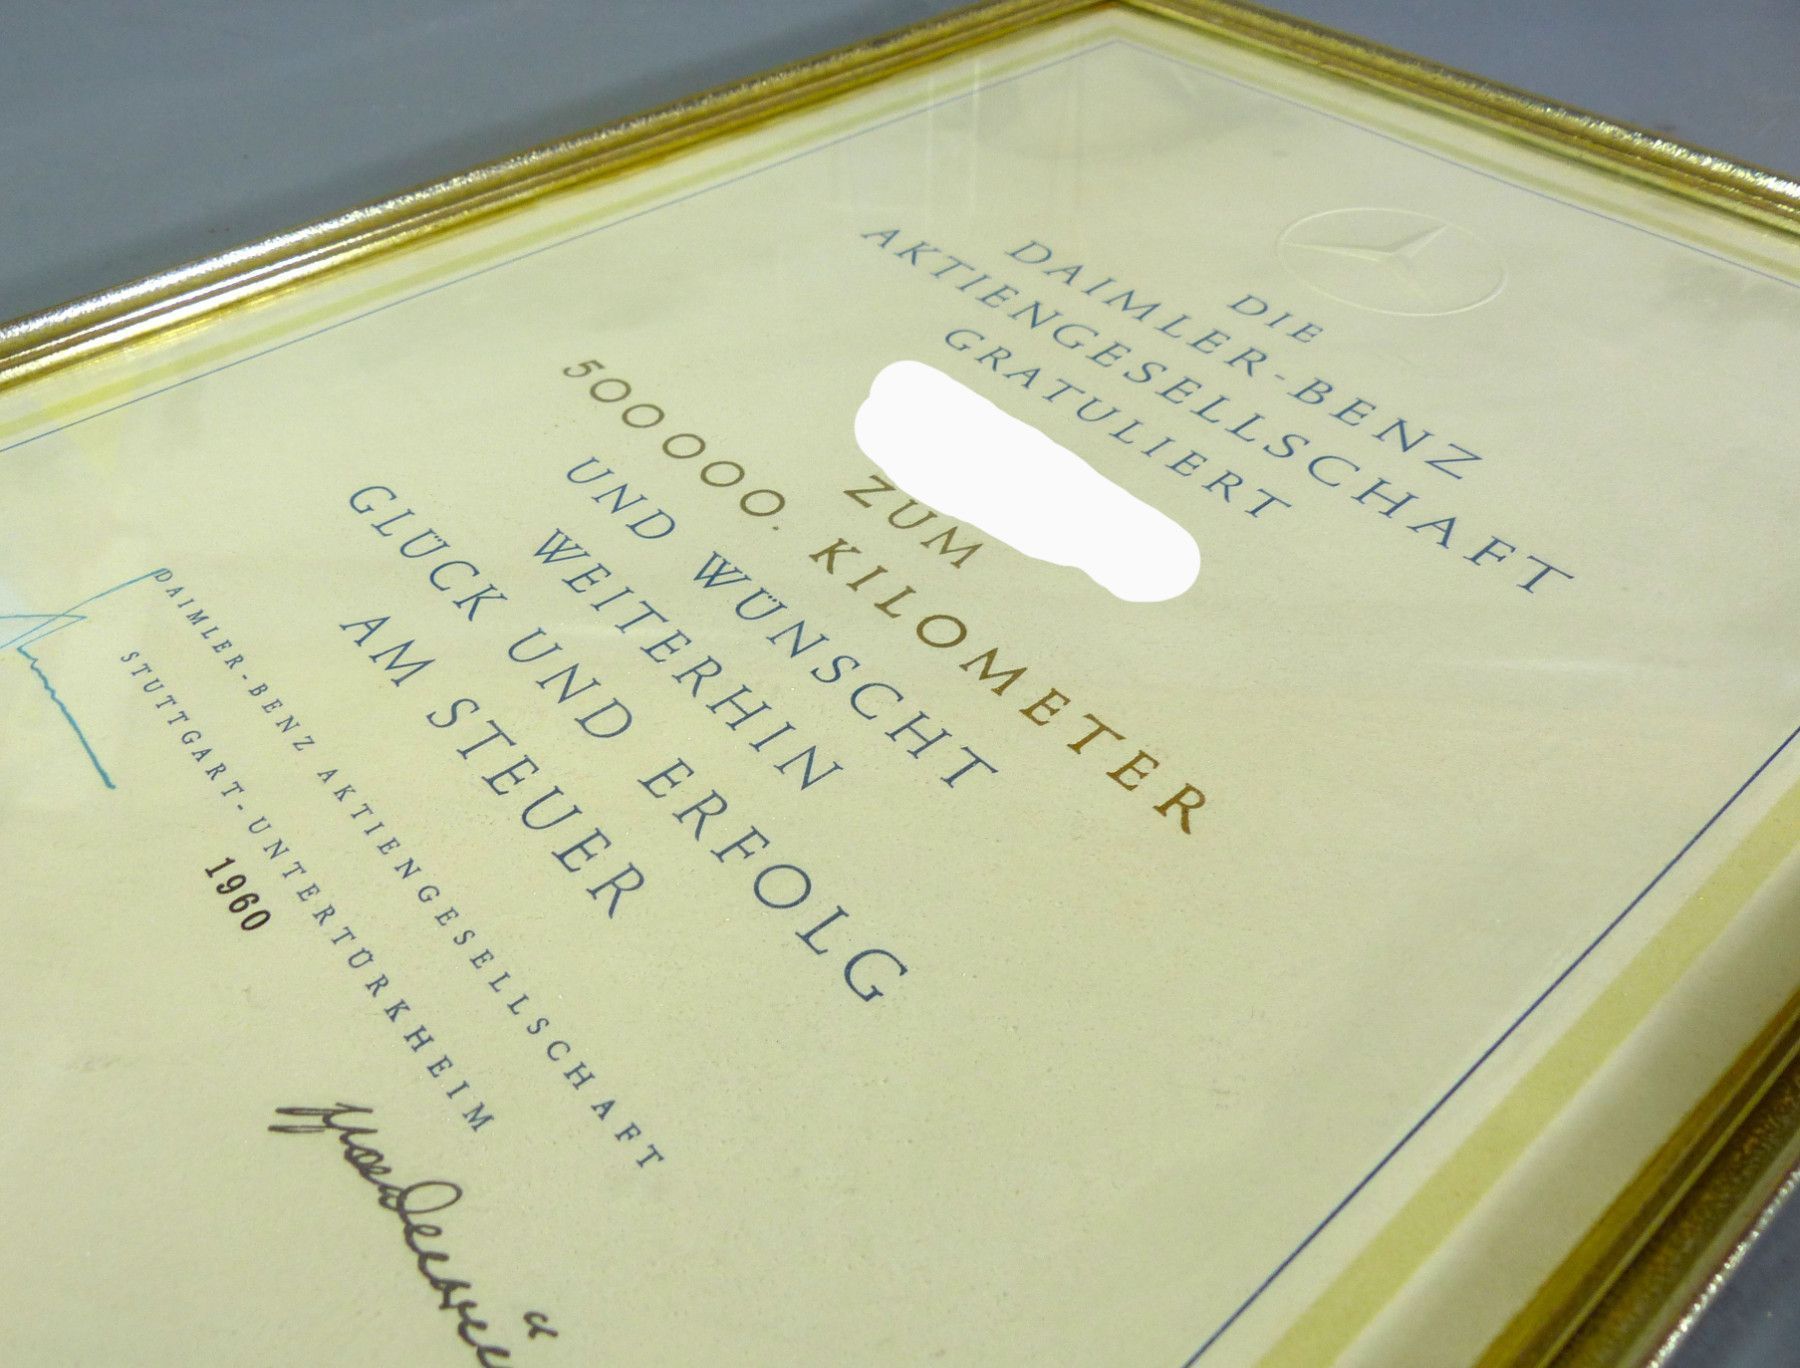 DIE
DAIMLER-BENZ
AKTIENGESELLSCHAFT
GRATULIERT
ZUM
500000. KILOMETER
UND WÜNSCHT
WEITERHIN
GLÜCK UND ERFOLG
AM STEUER
DAIMLER-BENZ AKTIENGESELLSCHAFT
STUTTGART-UNTERTÜRKHEIM
1960